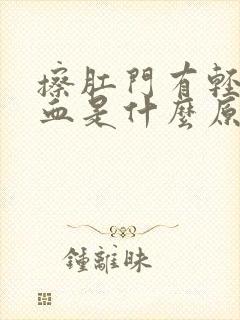 擦肛門有輕
血是什麼原
鍾離昧